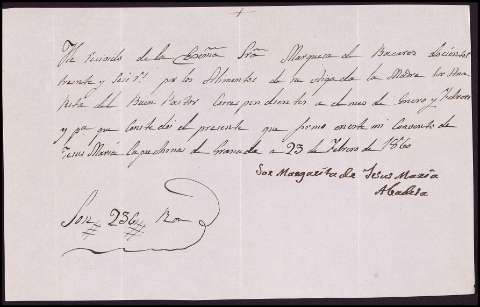 He recivido de la Exma Sra Marquesa de Bacares docientos
treinta y seis rs por los Alimentos de su hija la Madre Sor
del Buen Pastor correspondientes a el mes de Enero y Febrero
y pa qe Conste doi el presente que firmo en este mi Convento de
Jesus María Capuchinas de Granada a 23 de Febrero de 1860
Sor Margarita de Jesus María
Abadesa
Son 236 Rn